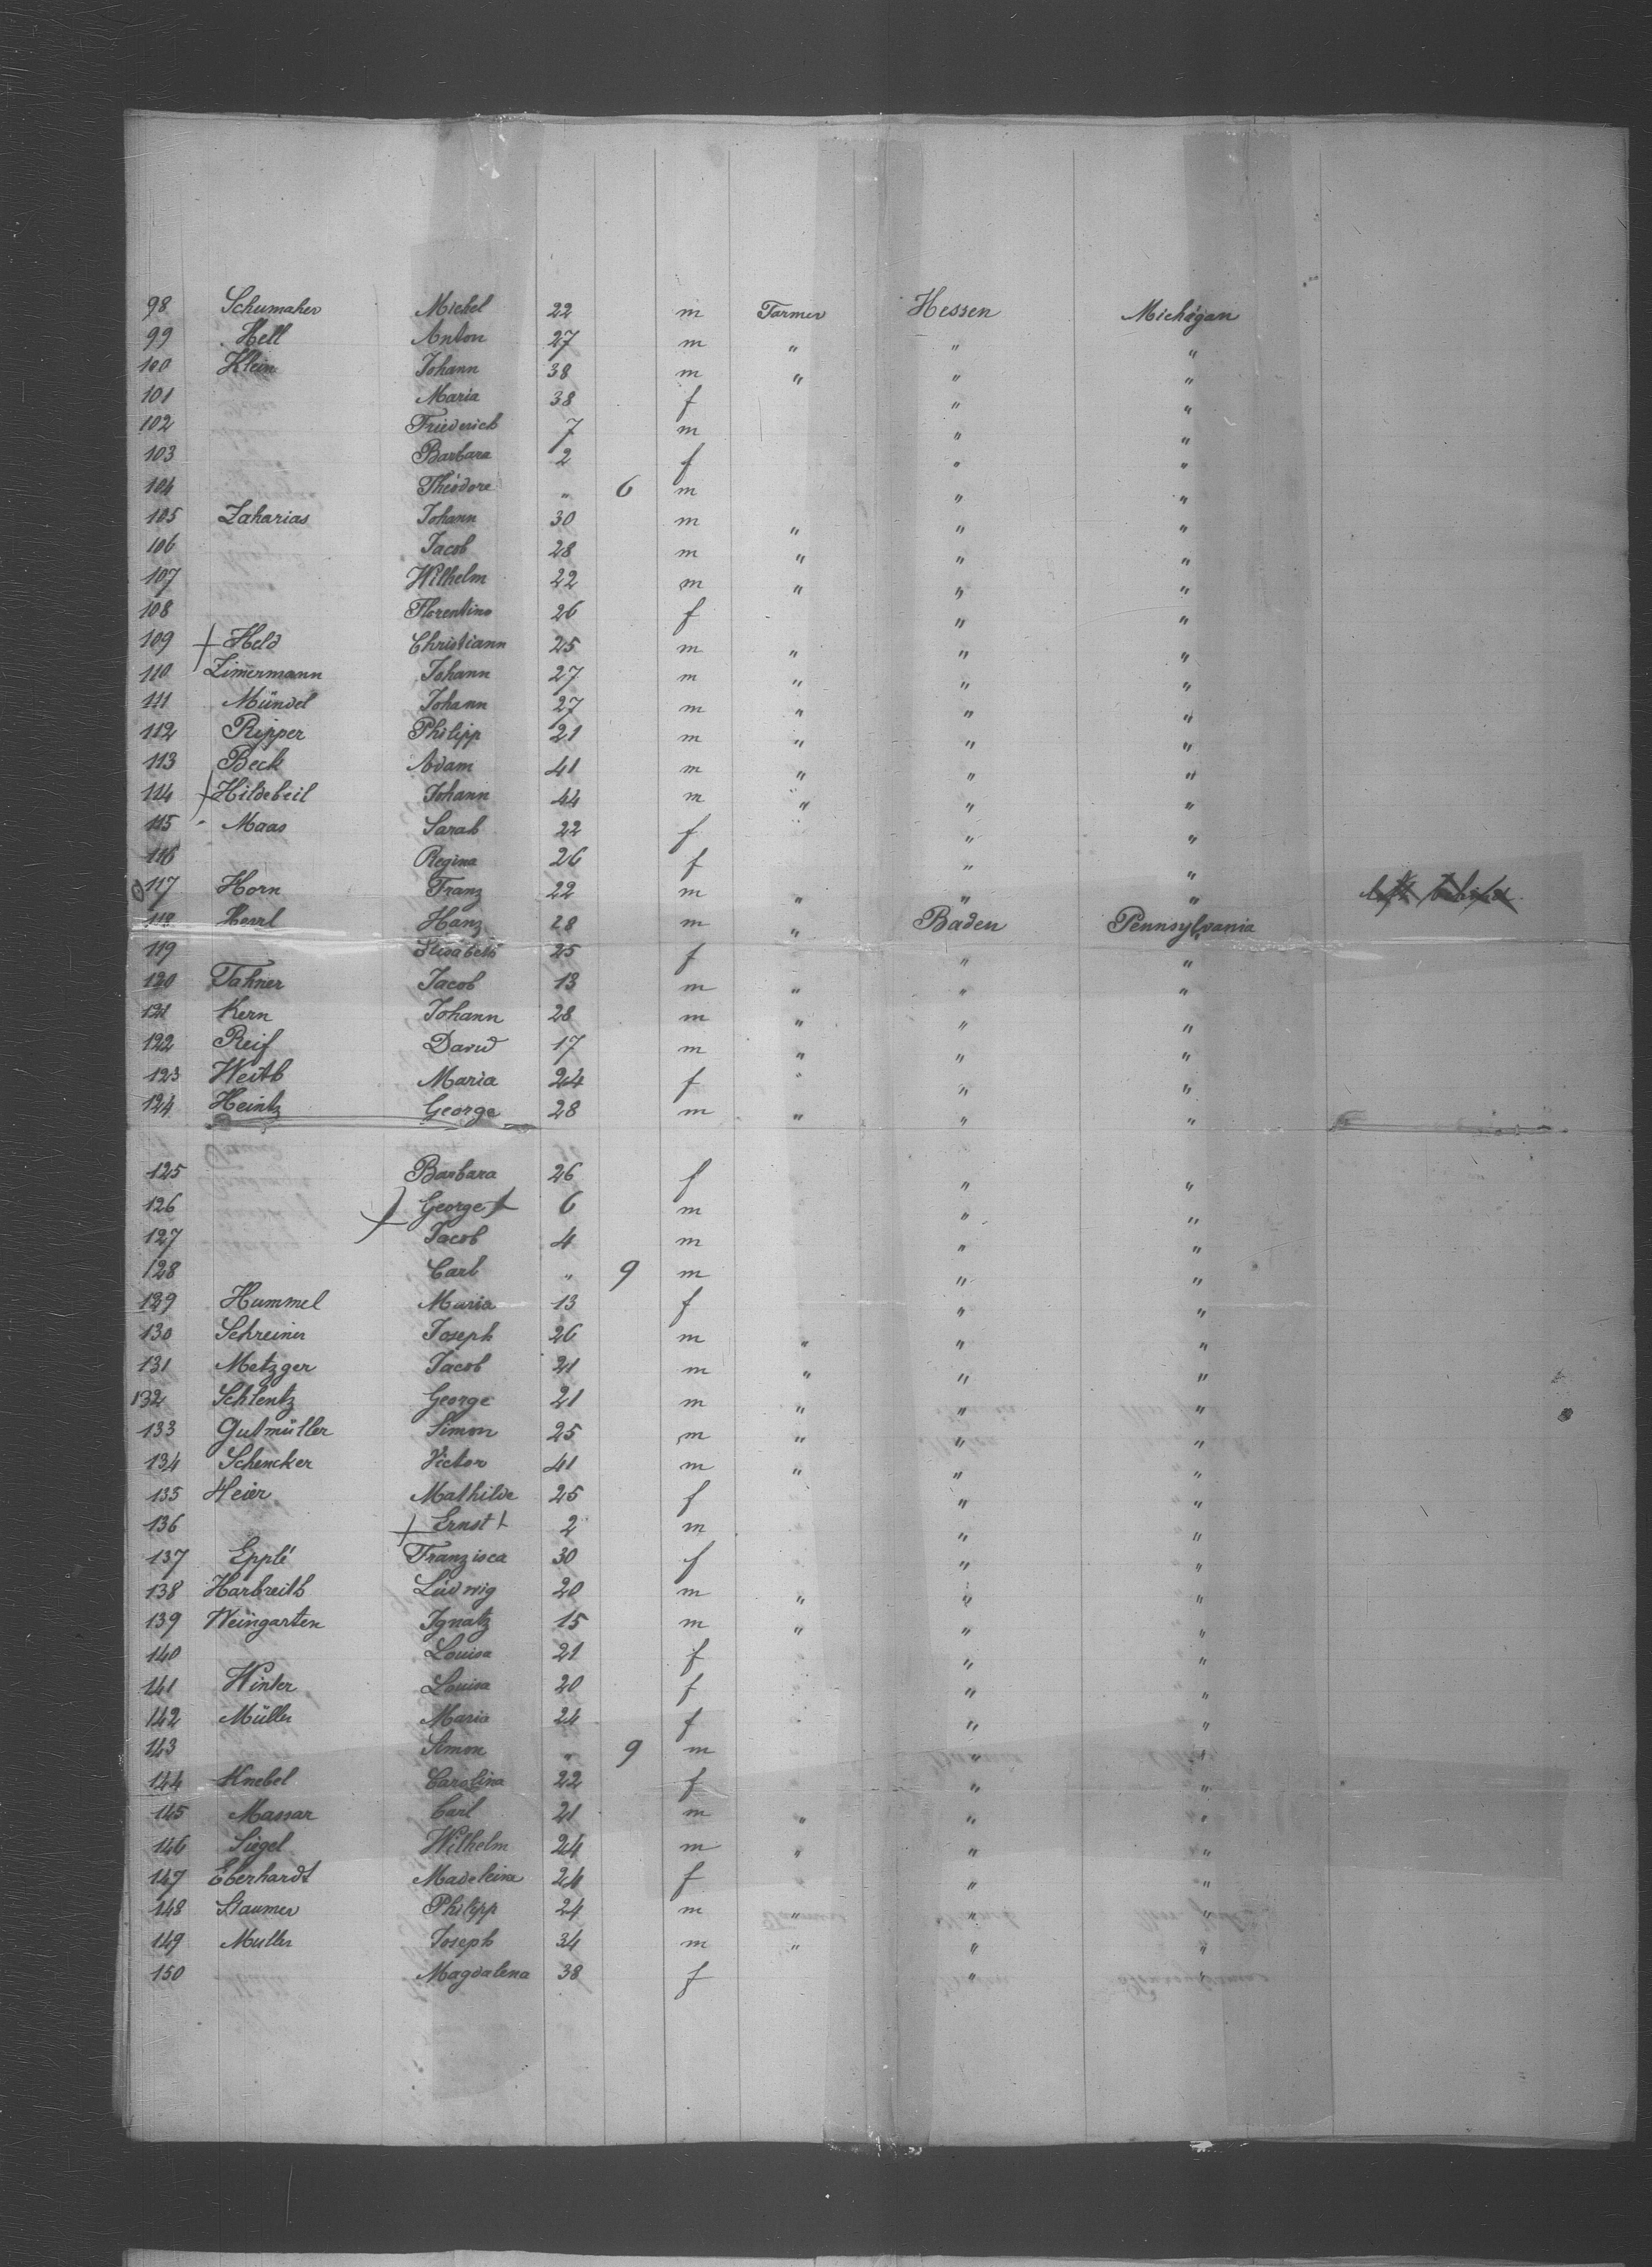 98 Schumaher Michel 22 m Farmer Hessen Michigan
99 Hell Anton 27 m " " "
100 Klein Johann 38 m " " "
101 Maria 38 f " "
102 Friederich 7 m " "
103 Barbara 2 f " "
104 Théodore " 6 m " "
105 Zaharias Johann 30 m " " "
106 Jacob 28 m " " "
107 Wilhelm 22 m " " "
108 Florentine 26 f " "
109 + Held Christiann 25 m " " "
110 Zimermann Johann 27 m " " "
111 Mündel Johann 27 m " " "
112 Ripper Philipp 21 m " " "
113 Beck Adam 41 m " " "
114 + Hildebeil Johann 44 m " " "
115 Maas Sarah 22 f " "
116 Regina 26 f " "
117 Horn Franz 22 m " " "
118 Herrl Hanz 28 m " Baden Pennsylvania
119 Elisabeth 25 f " "
120 Fahner Jacob 13 m " " "
121 Kern Johann 28 m " " "
122 Reif David 17 m " " "
123 Weith Maria 24 f " " "
124 Heintz George 28 m " " "
125 Barbara 26 f " "
126 + George + 6 m " "
127 Jacob 4 m " "
128 Carl " 9 m " "
129 Hummel Maria 13 f " "
130 Schreiner Joseph 26 m " " "
131 Metzger Jacob 21 m " " "
132 Schlentz George 21 m " " "
133 Gutmüller Simon 25 m " " "
134 Schencker Victor 41 m " " "
135 Heier Mathilde 25 f " "
136 + Ernst + 2 m " "
137 Epplé Franzisca 30 f " "
138 Harbreith Ludwig 20 m " " "
139 Weingarten Ignatz 15 m " " "
140 Louisa 21 f " "
141 Winter Louisa 20 f " "
142 Müller Maria 24 f " "
143 Simon " 9 m " "
144 Knebel Carolina 22 f " "
145 Massar Carl 21 m " " "
146 Siegel Wilhelm 24 m " " "
147 Eberhardt Madeleine 24 f " " "
148 Staumer Philipp 24 m " " "
149 Muller Joseph 34 m " " "
150 Magdalena 38 f " "